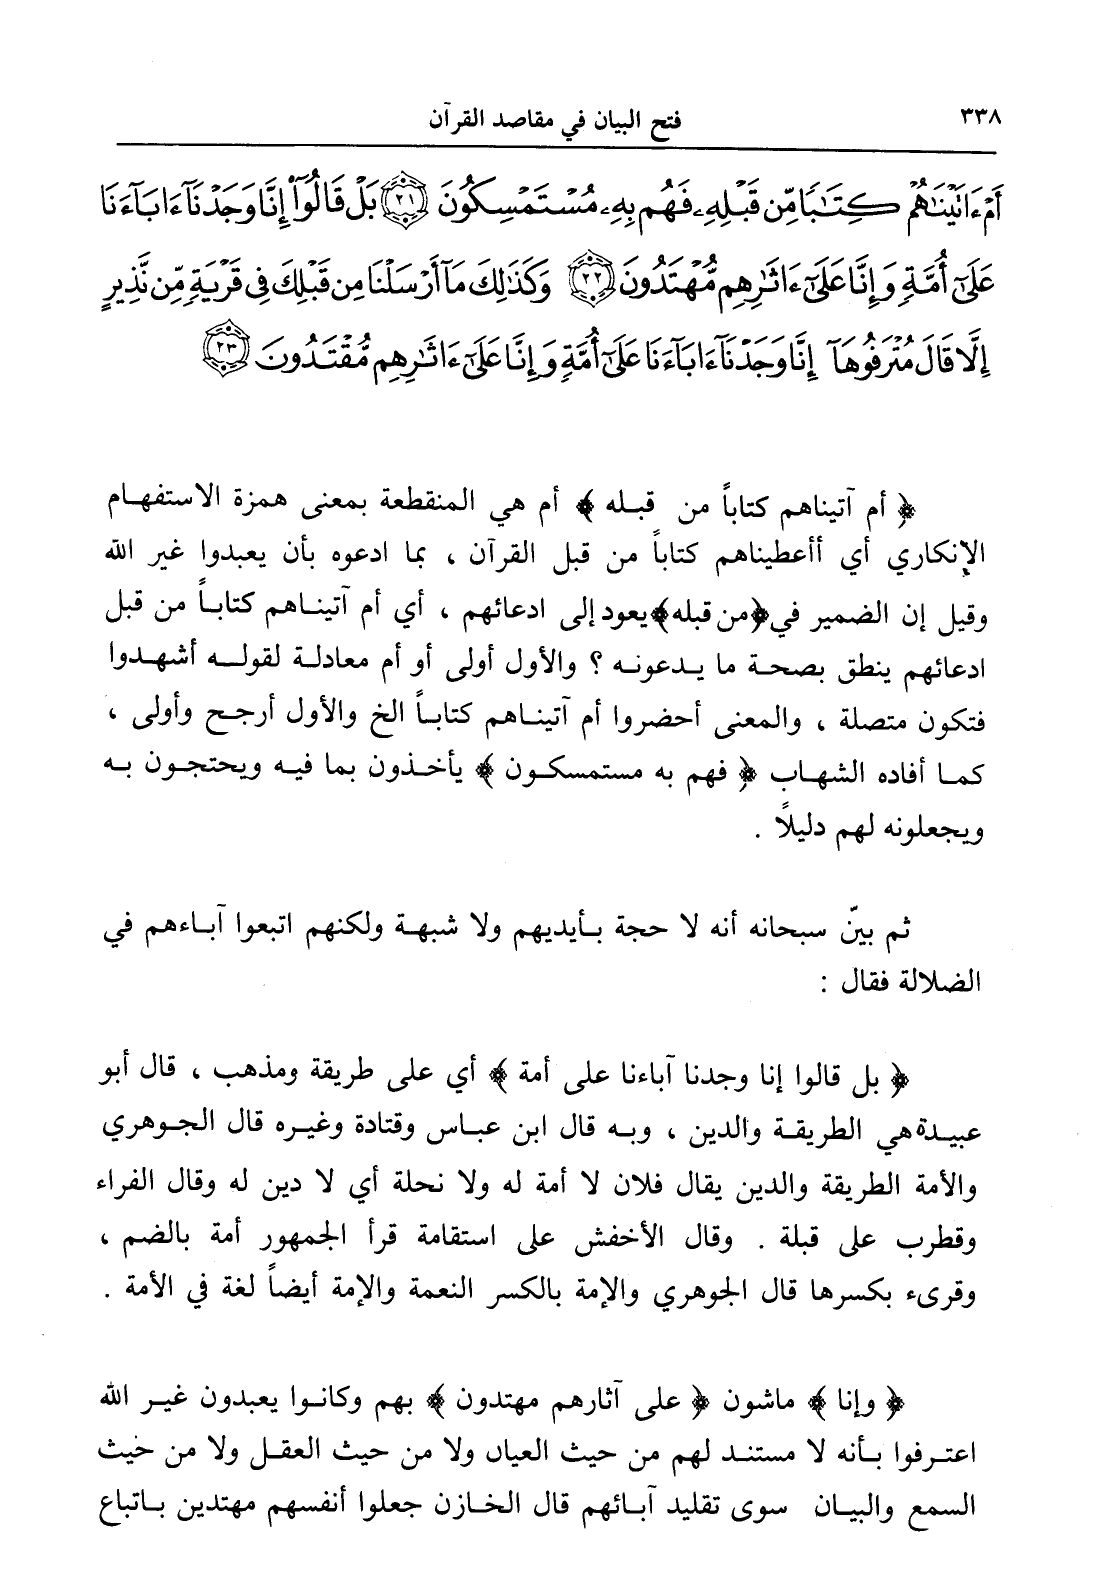 ٣٣٨ فتح البيان في مقاصد القرآن
أَمْ ءَاتَيْنَٰهُمْ كِتَٰبًا مِّن قَبْلِهِۦ فَهُم بِهِۦ مُسْتَمْسِكُونَ ٢١ بَلْ قَالُوٓا۟ إِنَّا وَجَدْنَآ ءَابَآءَنَا
عَلَىٰٓ أُمَّةٍ وَإِنَّا عَلَىٰٓ ءَاثَٰرِهِم مُّهْتَدُونَ ٢٢ وَكَذَٰلِكَ مَآ أَرْسَلْنَا مِن قَبْلِكَ فِى قَرْيَةٍ مِّن نَّذِيرٍ
إِلَّا قَالَ مُتْرَفُوهَآ إِنَّا وَجَدْنَآ ءَابَآءَنَا عَلَىٰٓ أُمَّةٍ وَإِنَّا عَلَىٰٓ ءَاثَٰرِهِم مُّقْتَدُونَ ٢٣
﴿ أم آتيناهم كتاباً من قبله ﴾ أم هي المنقطعة بمعنى همزة الاستفهام
الإنكاري أي أأعطيناهم كتاباً من قبل القرآن ، بما ادعوه بأن يعبدوا غير الله
وقيل إن الضمير في ﴿من قبله﴾ يعود إلى ادعائهم ، أي أم آتيناهم كتاباً من قبل
ادعائهم ينطق بصحة ما يدعونه ؟ والأول أولى أو أم معادلة لقوله أشهدوا
فتكون متصلة ، والمعنى أحضروا أم آتيناهم كتاباً الخ والأول أرجح وأولى ،
كما أفاده الشهاب ﴿ فهم به مستمسكون ﴾ يأخذون بما فيه ويحتجون به
ويجعلونه لهم دليلاً .
ثم بيّن سبحانه أنه لا حجة بأيديهم ولا شبهة ولكنهم اتبعوا آباءهم في
الضلالة فقال :
﴿ بل قالوا إنا وجدنا آباءنا على أمة ﴾ أي على طريقة ومذهب ، قال أبو
عبيدة هي الطريقة والدين ، وبه قال ابن عباس وقتادة وغيره قال الجوهري
والأمة الطريقة والدين يقال فلان لا أمة له ولا نحلة أي لا دين له وقال الفراء
وقطرب على قبلة . وقال الأخفش على استقامة قرأ الجمهور أمة بالضم ،
وقرىء بكسرها قال الجوهري والإمة بالكسر النعمة والإمة أيضاً لغة في الأمة .
﴿ وإنا ﴾ ماشون ﴿ على آثارهم مهتدون ﴾ بهم وكانوا يعبدون غير الله
اعترفوا بأنه لا مستند لهم من حيث العيان ولا من حيث العقل ولا من حيث
السمع والبيان سوى تقليد آبائهم قال الخازن جعلوا أنفسهم مهتدين باتباع